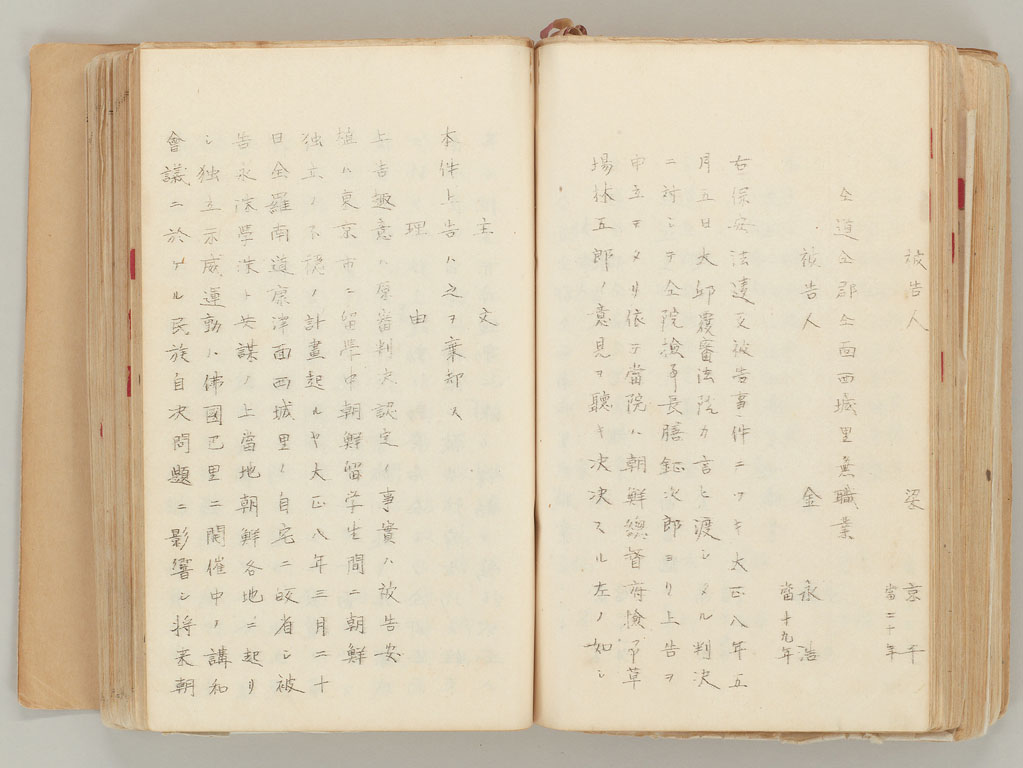 被告人 梁京千
當二十年
仝道仝郡仝面西城里無職業
被告人 金永浩
當十九年
右保安法違反被告事件ニツキ大正八年五
月五日大邱覆審法院カ言ヒ渡シタル判決
ニ対シテ仝院検事長膳鉦次郎ヨリ上告ヲ
申立テタリ依テ當院ハ朝鮮總督府検事草
場林五郎ノ意見ヲ聴キ決決スル左ノ如シ
主文
本件上告ハ之ヲ棄却ス
理由
上告趣意ハ原審判決認定ノ事實ハ被告安
ハ東京市ニ留學中朝鮮留学生間ニ朝鮮
独立ノ不穏ノ計畫起ルヤ大正八年三月二十
日全羅南道康津面西城里ノ自宅ニ皈省シ被
告永浩學洙ト共謀ノ上當地朝鮮各地ニ起リ
シ独立示威運動ハ佛國巴里ニ開催中ノ講和
會議ニ於ケル民族自决問題ニ影響シ将来朝